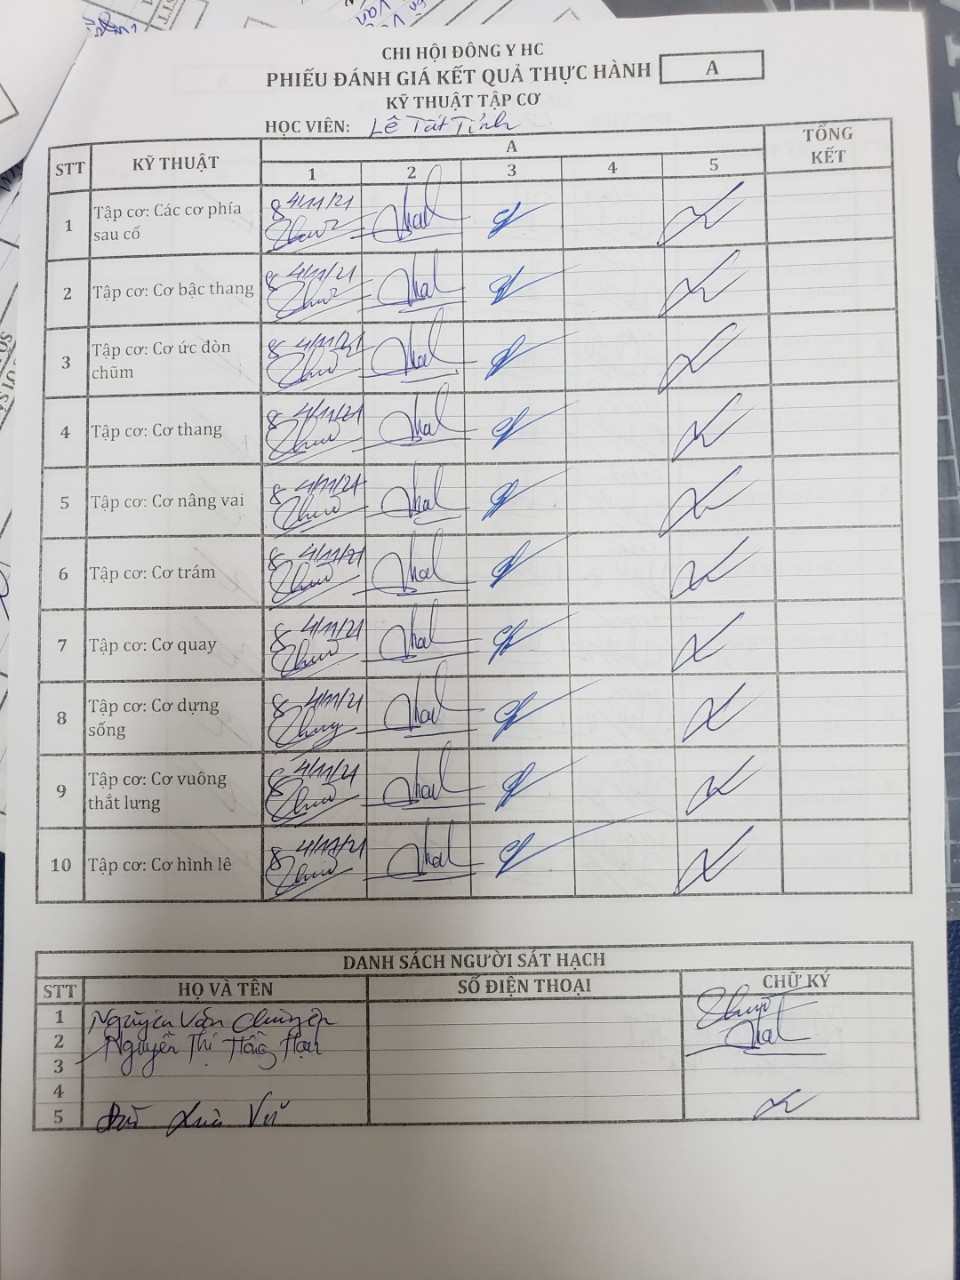 CHI HỘI ĐÔNG Y HC
PHIẾU ĐÁNH GIÁ KẾT QUẢ THỰC HÀNH A
KỸ THUẬT TẬP CƠ
HỌC VIÊN: Lê Tất Tính
STT KỸ THUẬT A TỔNG KẾT
1 2 3 4 5
1 Tập cơ: Các cơ phía sau cổ 8 4/11/21
2 Tập cơ: Cơ bậc thang 8 4/11/21
3 Tập cơ: Cơ ức đòn chũm 8 4/11/21
4 Tập cơ: Cơ thang 8 4/11/21
5 Tập cơ: Cơ nâng vai 8 4/11/21
6 Tập cơ: Cơ trám 8 4/11/21
7 Tập cơ: Cơ quay 8 4/11/21
8 Tập cơ: Cơ dựng sống 8 4/11/21
9 Tập cơ: Cơ vuông thắt lưng 8 4/11/21
10 Tập cơ: Cơ hình lê 8 4/11/21
DANH SÁCH NGƯỜI SÁT HẠCH
STT HỌ VÀ TÊN SỐ ĐIỆN THOẠI CHỮ KÝ
1 Nguyễn Văn
2 Nguyễn Thị Hồng Hạnh
3
4
5 Vũ